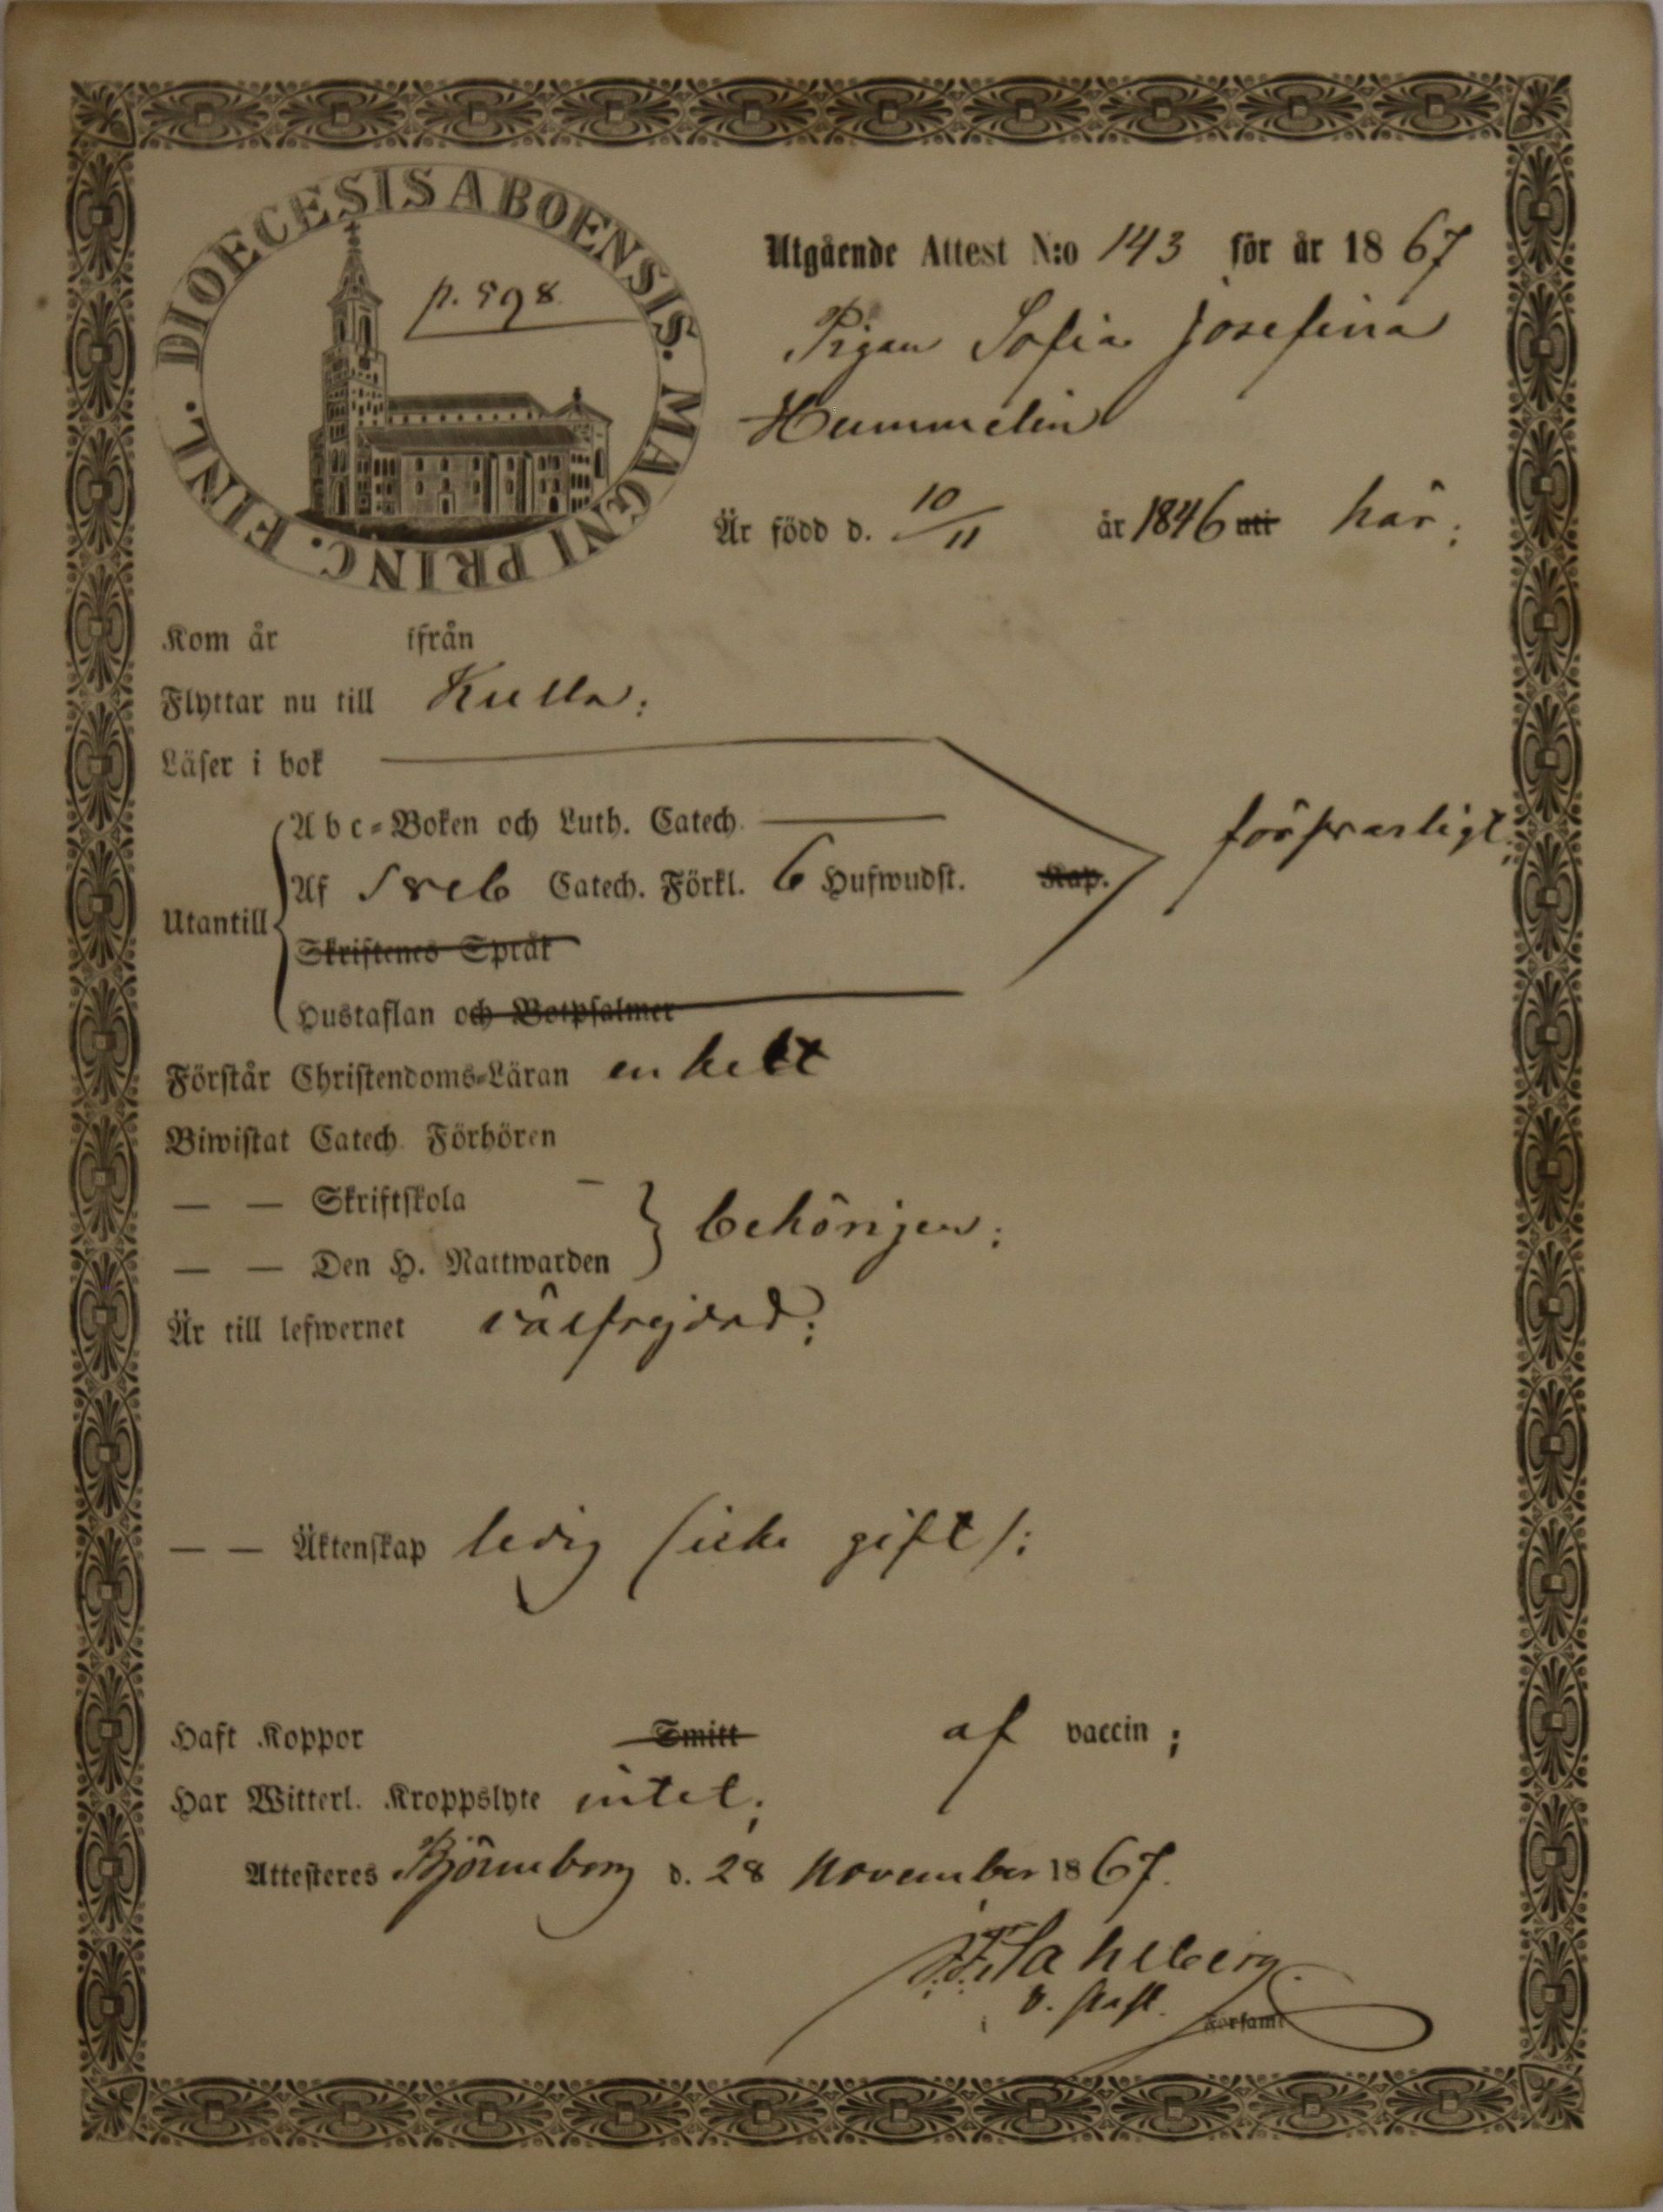 DIOECESIS ABOENSIS. MAGNI PRINC. FINL.
p. 598
Utgående Attest N:o 143 för år 1867
Pigan Sofia Josefina
Hummelin
Är född d. 10/11 år 1846 uti här;
Kom år ifrån
Flyttar nu till Kulla;
Läser i bok
Abc-Boken och Luth. Catech.
försvarligt;
Af Sveb Catech. Förkl. 6 Hufwudst. Kap.
Utantill
Skriftenes Språk
Hustaflan och Botpsalmer
Förstår Christendoms-Läran enkelt
Biwistat Catech. Förhören
— — Skriftskola
behörigen;
— — Den H. Nattwarden
Är till lefwernet välfrejdad;
— — Äktenskap ledig (icke gift);
Haft Koppor Smitt af vaccin;
Har Witterl. Kroppslyte intet;
Attesteres Björneborg d. 28 November 1867.
Sahlberg.
v. past.
i Församl